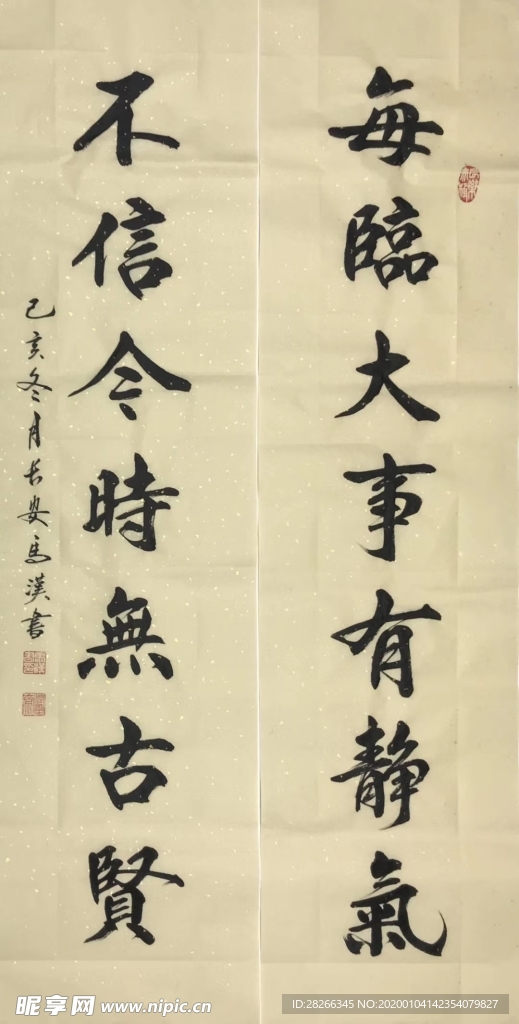 每臨大事有静氣
不信令時無古賢
己亥冬月长安馬漢書
昵享网 www.nipic.cn
ID:28266345 NO:20200104142354079827